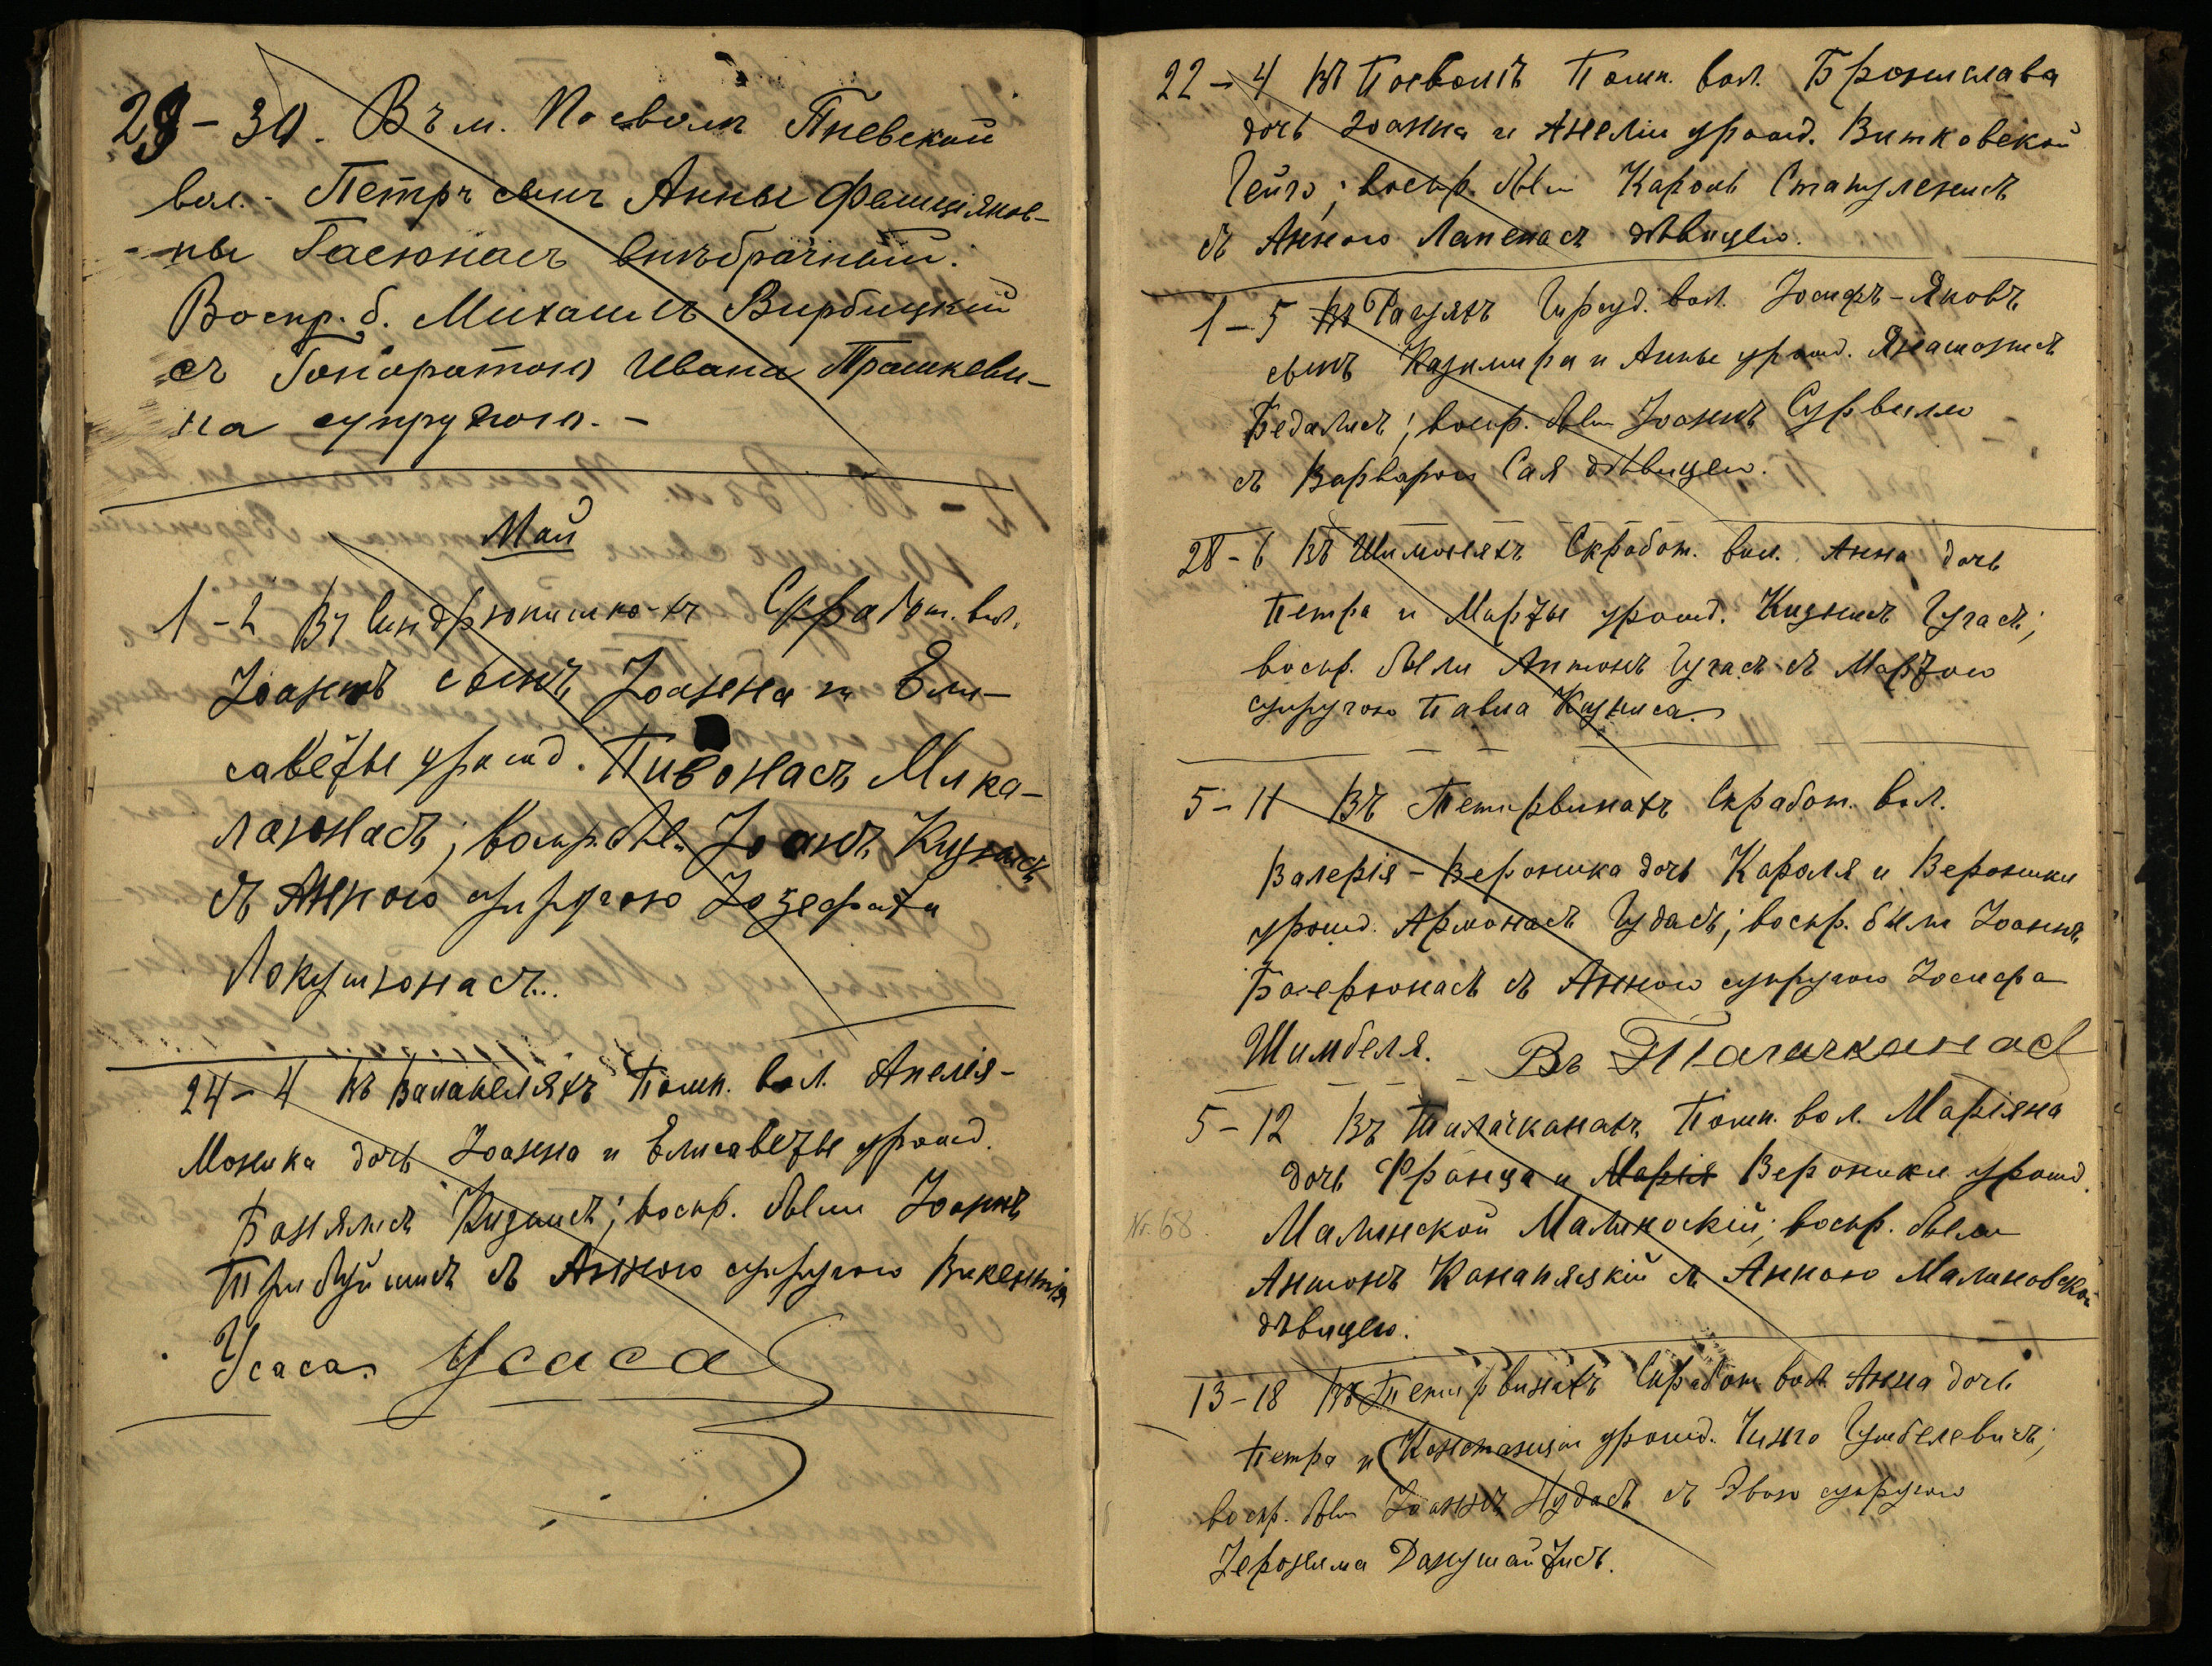 29 - 30. Въ м. Посволѣ Пневской
вол. - Петръ сынъ Анны Фелиціянов-
- ны Гасюнасъ внѣбрачный.
Воспр. б. Михаилъ Вирбицкій
съ Гоноратою Ивана Прашкеви-
ча супругою. -
Май
1 - 2 Въ Скработ. вол.
Іоаннъ сынъ Іоанна и Ели-
саветы урожд. Пивонасъ Мика-
лаюнасъ; воспр. были Іоаннъ Кизнисъ
съ Анною супругою Іозефата
Локушюнасъ.
24 - 4 Въ Валакеляхъ Помп. вол. Анелія -
Моника дочь Іоанна и Елисаветы урожд.
Банялисъ Кизнисъ; воспр. были Іоаннъ
Трибуйшисъ съ Анною супругою Викентія
Усаса. Усаса
22 - 4 Въ Посволѣ Помп. вол. Бронислава
дочь Іоанна и Анеліи урожд. Витковской
Чейго; воспр. были Кароль Стапуленисъ
съ Анною Лапенасъ дѣвицею.
1 - 5 Въ Рагуяхъ Гируд. вол. Іосифъ - Яковъ
сынъ Казимира и Анны урожд. Янашонисъ
Бедалисъ; воспр. были Іоаннъ Сурвилло
съ Варварою Сая дѣвицею.
28 - 6 Въ Шимонеляхъ Скработ. вол. Анна дочь
Петра и Марты урожд. Кизнисъ Цугасъ;
воспр. были Антонъ Цугасъ съ Мартою
супругою Павла Кизниса.
5 - 11 Въ Петирвинахъ Скработ. вол.
Валерія - Вероника дочь Кароля и Вероники
урожд. Армонасъ Чудасъ; воспр. были Іоаннъ
Багерюнасъ съ Анною супругою Іосифа
Шимбеля. Въ
5 - 12 Въ Помп. вол. Маріяна
дочь Франца и Марія Вероники урожд.
Малинской Малиноскій; воспр. были
Антонъ Канапяцкій съ Анною Малиновской
дѣвицею.
Nr. 68.
13 - 18 Въ Петирвинахъ Скработ. вол. Анна дочь
Петра и Констанціи урожд. Чинго Цумбелевичъ;
воспр. были Іоаннъ Чудасъ съ Эвою супругою
Іеронима Данушайтисъ.